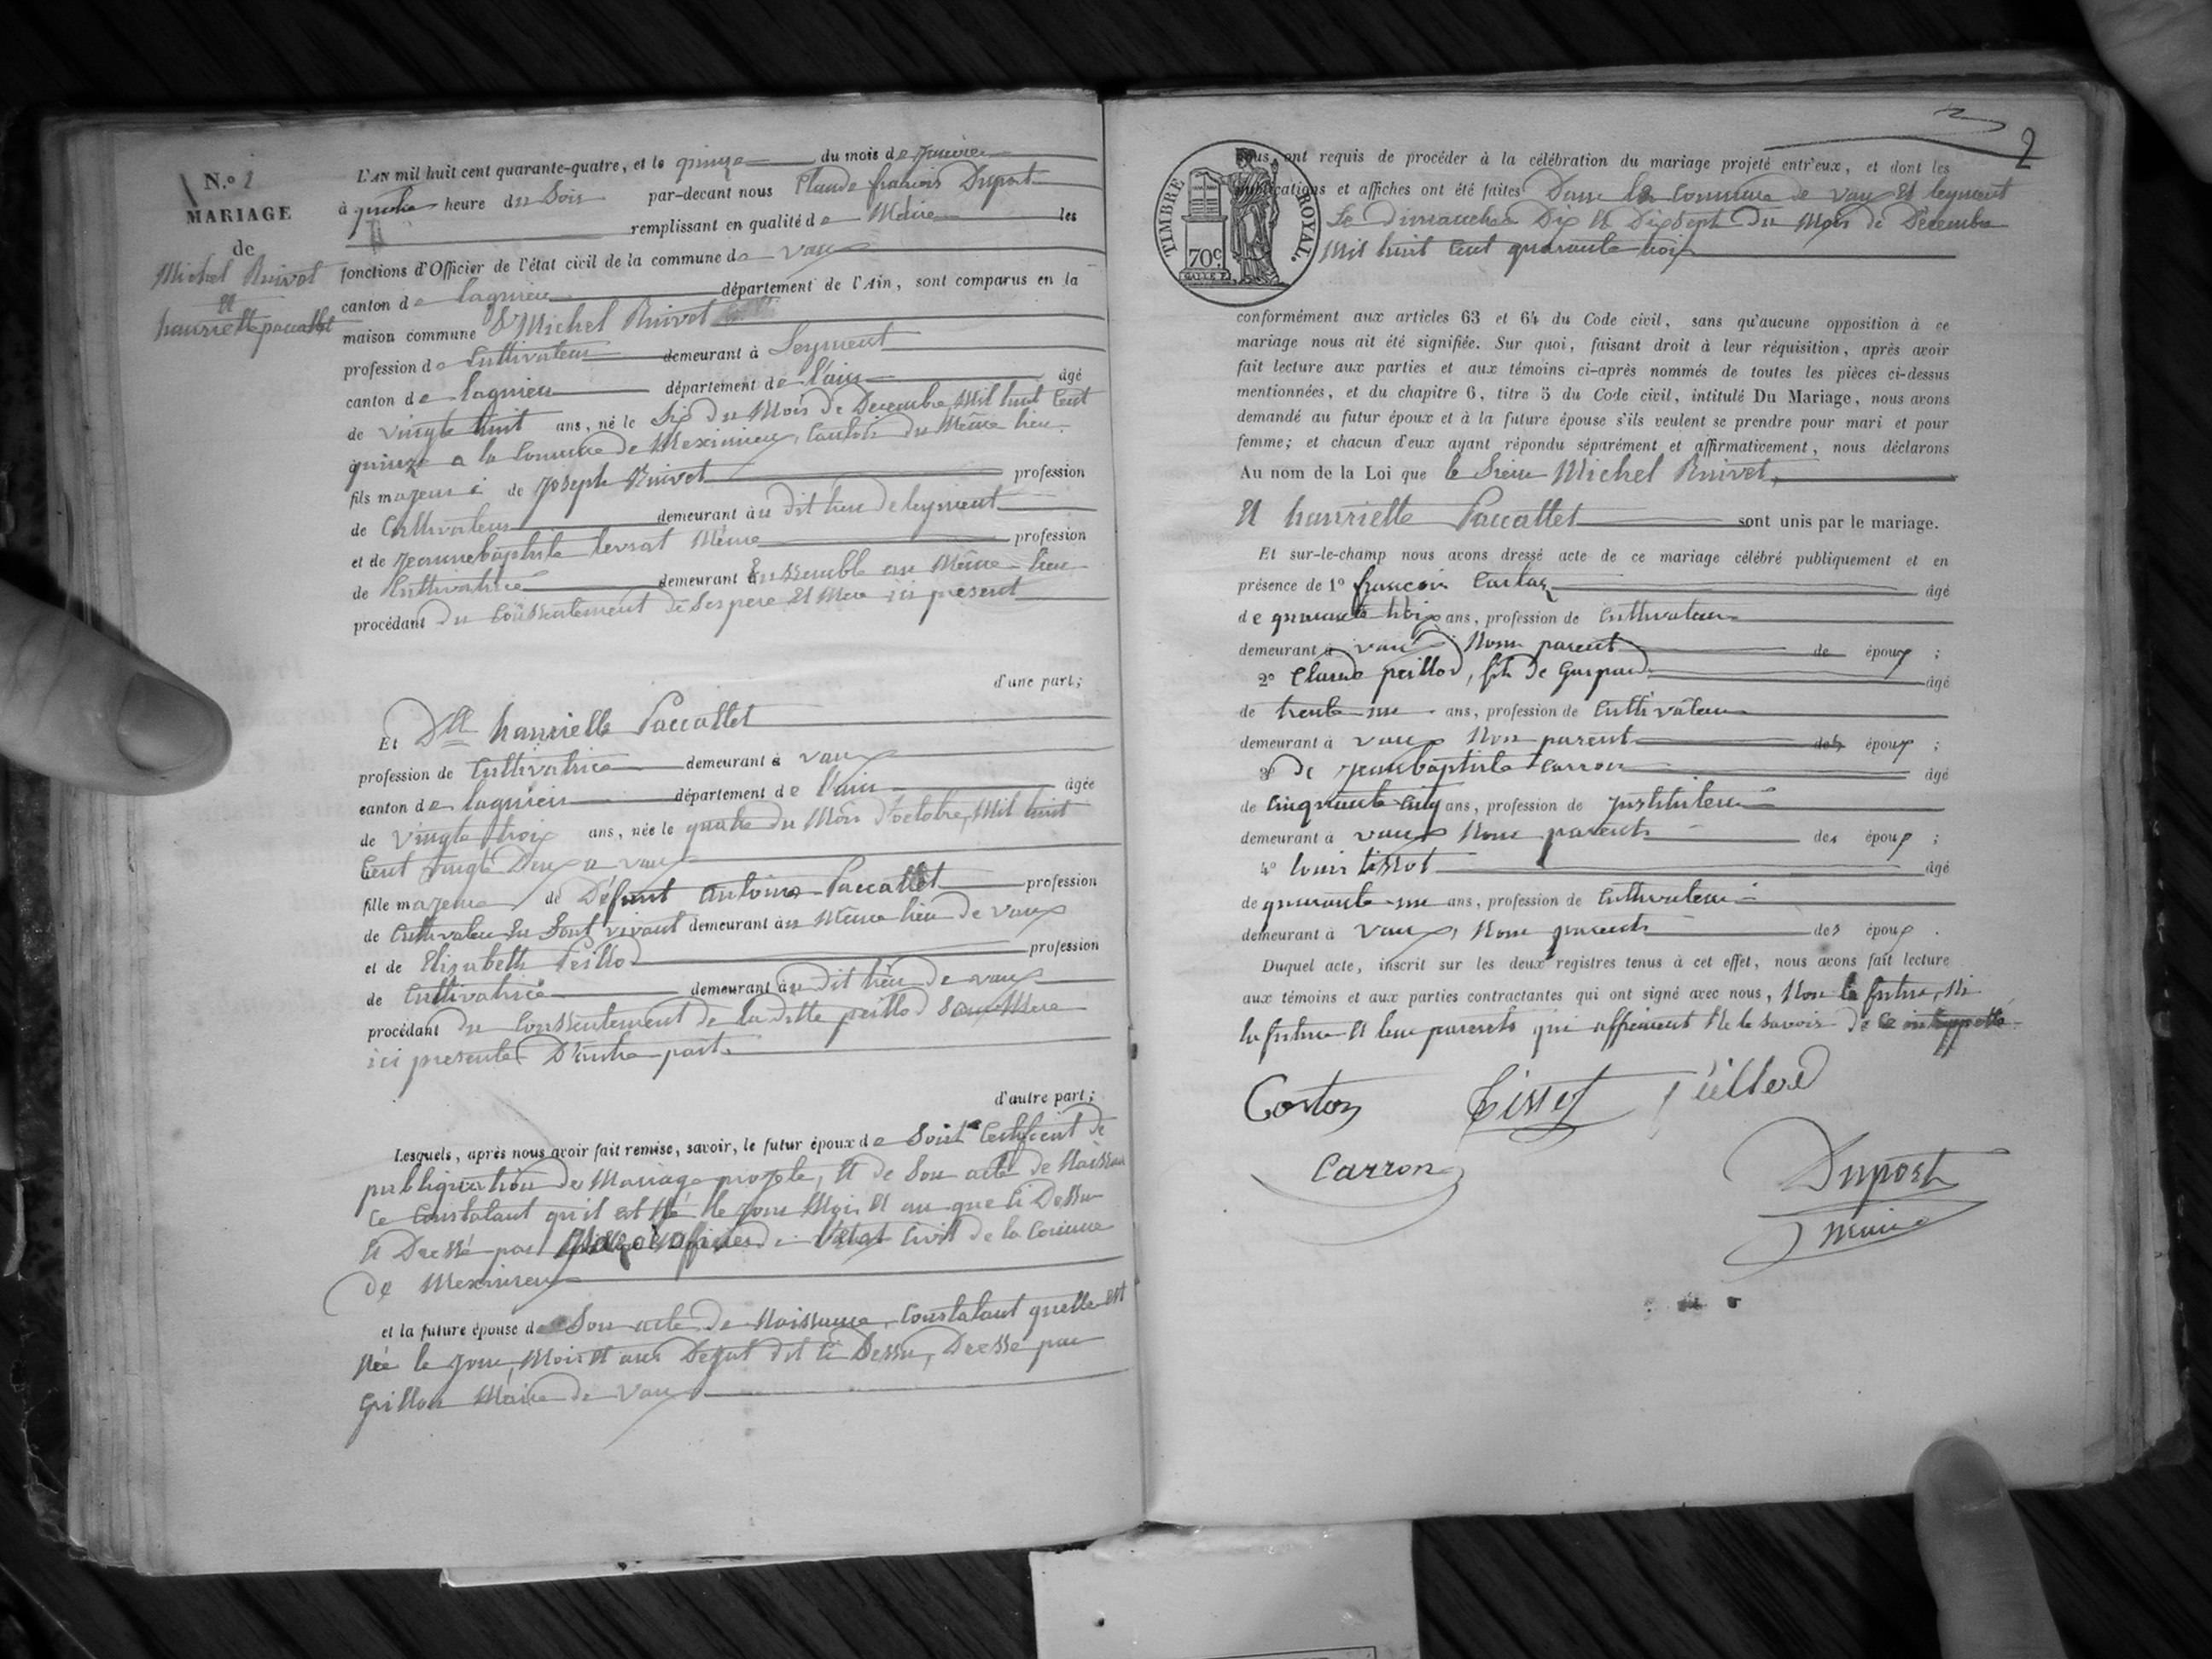 N.º 2
MARIAGE
de
Michel Ruivet
Et
hanriette paccallet
L'AN mil huit cent quarante-quatre, et le quinze du mois de Janvier
à quatre heure du Soir par-devant nous Claude françois Duport
remplissant en qualité de Maire les
fonctions d'Officier de l'état civil de la commune de Vaux
canton de lagnieu département de l'Ain, sont comparus en la
maison commune Sr Michel Ruivet
profession de Cultivateur demeurant à Leyment
canton de lagnieu département de l'ain âgé
de vingte huit ans, né le Six du Mois de Decembre, Mil huit Cent
quinze a la Commune de Meximieux, Canton du Même lieu.
fils majeur de Joseph Ruivet profession
de Cultivateur demeurant au dit lieu de leyment
et de Jeanne baptiste levrat Même profession
de Cultivatrice demeurant Enssemble au Même lieu
procédant du Conssentement de Ses pere Et Mere ici présent
d'une part;
Et Dlle hanriette Paccallet
profession de Cultivatrice demeurant à vaux
canton de lagnieu département de l'ain âgée
de Vingte troix ans, née le quatre du Mois d'octobre, Mil huit
Cent vingte Deux a vaux
fille majeure de Défunt Antoine Paccallet profession
de Cultivateur En Sont vivant demeurant au Même lieu de Vaux
et de Elizabeth Peillod profession
de Cultivatrice demeurant au dit lieu de vaux
procédant du Conssentement de la ditte peillod Sa Mere
ici presente D'autre part.
d'autre part;
Lesquels, après nous avoir fait remise, savoir, le futur époux de Certificat de
publiquation de Mariage projeté, Et de Son acte de Naissan
ce Constatant qu'il est Né le jour Mois Et an que Ci Dessu
Et Dressé par officier de L'etat Civil de la Comune
de Meximieux
et la future épouse de Son acte de Naissance, Constatant quelle est
Née le jour, Mois Et ans Dejat dit Ci Dessu, Dressé par
Grillon Maire de Vaux
2
TIMBRE ROYAL.
70c.
nous ont requis de procéder à la célébration du mariage projeté entr'eux, et dont les
publications et affiches ont été faites Dans la Commune de vaux Et leyment
Le dimanche Dix Et Dixsept du Mois de Décembre
Mil huit Cent quarante troix
conformément aux articles 63 et 64 du Code civil, sans qu'aucune opposition à ce
mariage nous ait été signifiée. Sur quoi, faisant droit à leur réquisition, après avoir
fait lecture aux parties et aux témoins ci-après nommés de toutes les pièces ci-dessus
mentionnées, et du chapitre 6, titre 5 du Code civil, intitulé Du Mariage, nous avons
demandé au futur époux et à la future épouse s'ils veulent se prendre pour mari et pour
femme; et chacun d'eux ayant répondu séparément et affirmativement, nous déclarons
Au nom de la Loi que le Sieur Michel Ruivet,
Et hanriette Paccallet sont unis par le mariage.
Et sur-le-champ nous avons dressé acte de ce mariage célébré publiquement et en
présence de 1º françois Cartoz âgé
de quarante troix ans, profession de Cultivateur
demeurant à vaux Nom parent de époux ;
2º Claude peillod, fils de Gaspard âgé
de trente un ans, profession de Cultivateur
demeurant à vaux Non parent des époux ;
3º de Jean baptiste Carron âgé
de Cinquante Cinq ans, profession de Jnstituteur
demeurant à vaux Nom parents des époux ;
4º louis tissot âgé
de quarante un ans, profession de Cultivateur
demeurant à Vaux, Nom parents des époux .
Duquel acte, inscrit sur les deux registres tenus à cet effet, nous avons fait lecture
aux témoins et aux parties contractantes qui ont signé avec nous, Non le futur, Ni
la future Et leur parents qui affirment Ne le Savoir de Ce
Cortoz Tissot peillod
Carron
Duport
maire